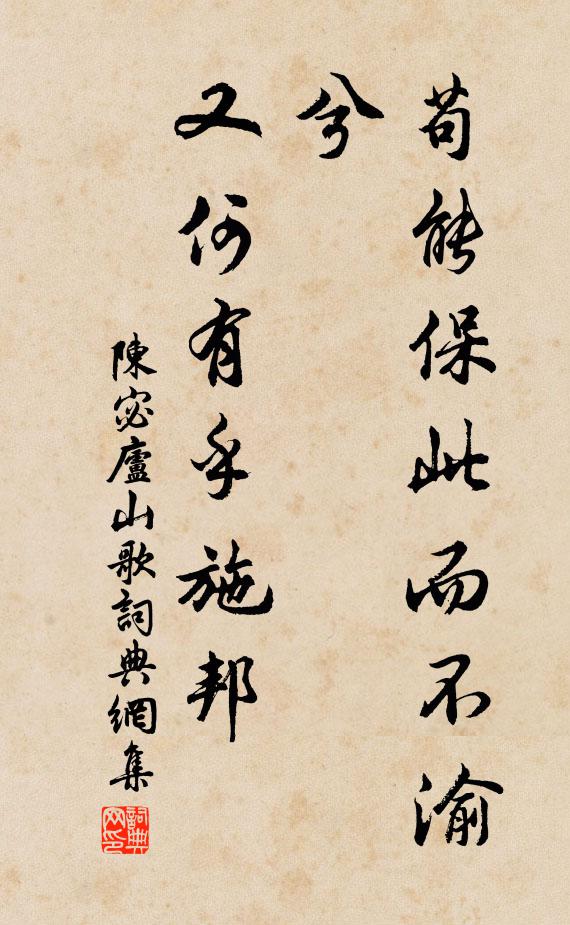 苟能保此而不渝
兮
又何有乎施邦
陳宓廬山歌詞典網集
詞典
网印